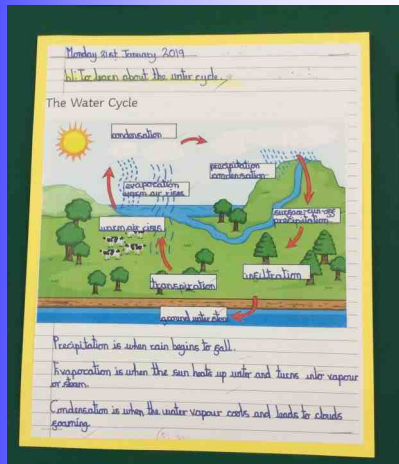 Monday 21st January 2019
L.I: To learn about the water cycle.
The Water Cycle
condensation
precipitation
condensation
evaporation
warm air rises
surface run-off
precipitation
warm air rises
infiltration
transpiration
ground water store
Precipitation is when rain begins to fall.
Evaporation is when the sun heats up water and turns into vapour
or steam.
Condensation is when the water vapour cools and leads to clouds
foaming.